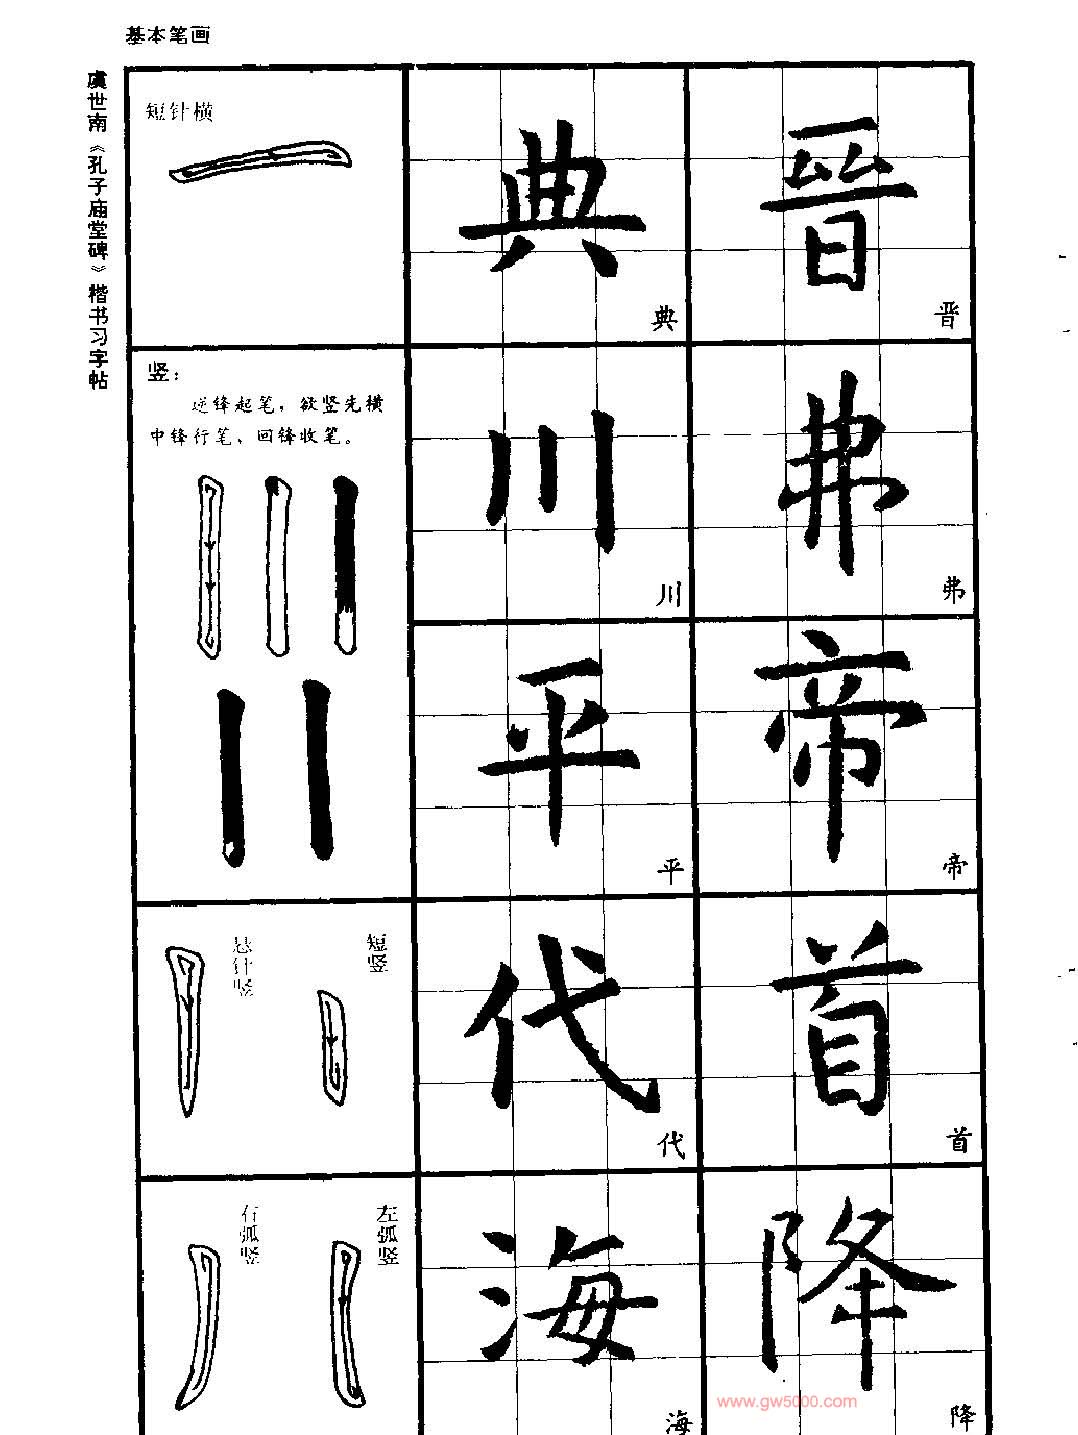 基本笔画
虞世南《孔子庙堂碑》楷书习字帖
短针横
典
典
晋
晋
竖：
逆锋起笔，欲竖先横
中锋行笔、回锋收笔。
川
川
弗
弗
平
平
帝
帝
悬针竖
短竖
代
代
首
首
右弧竖
左弧竖
海
海
降
降
www.gw5000.com